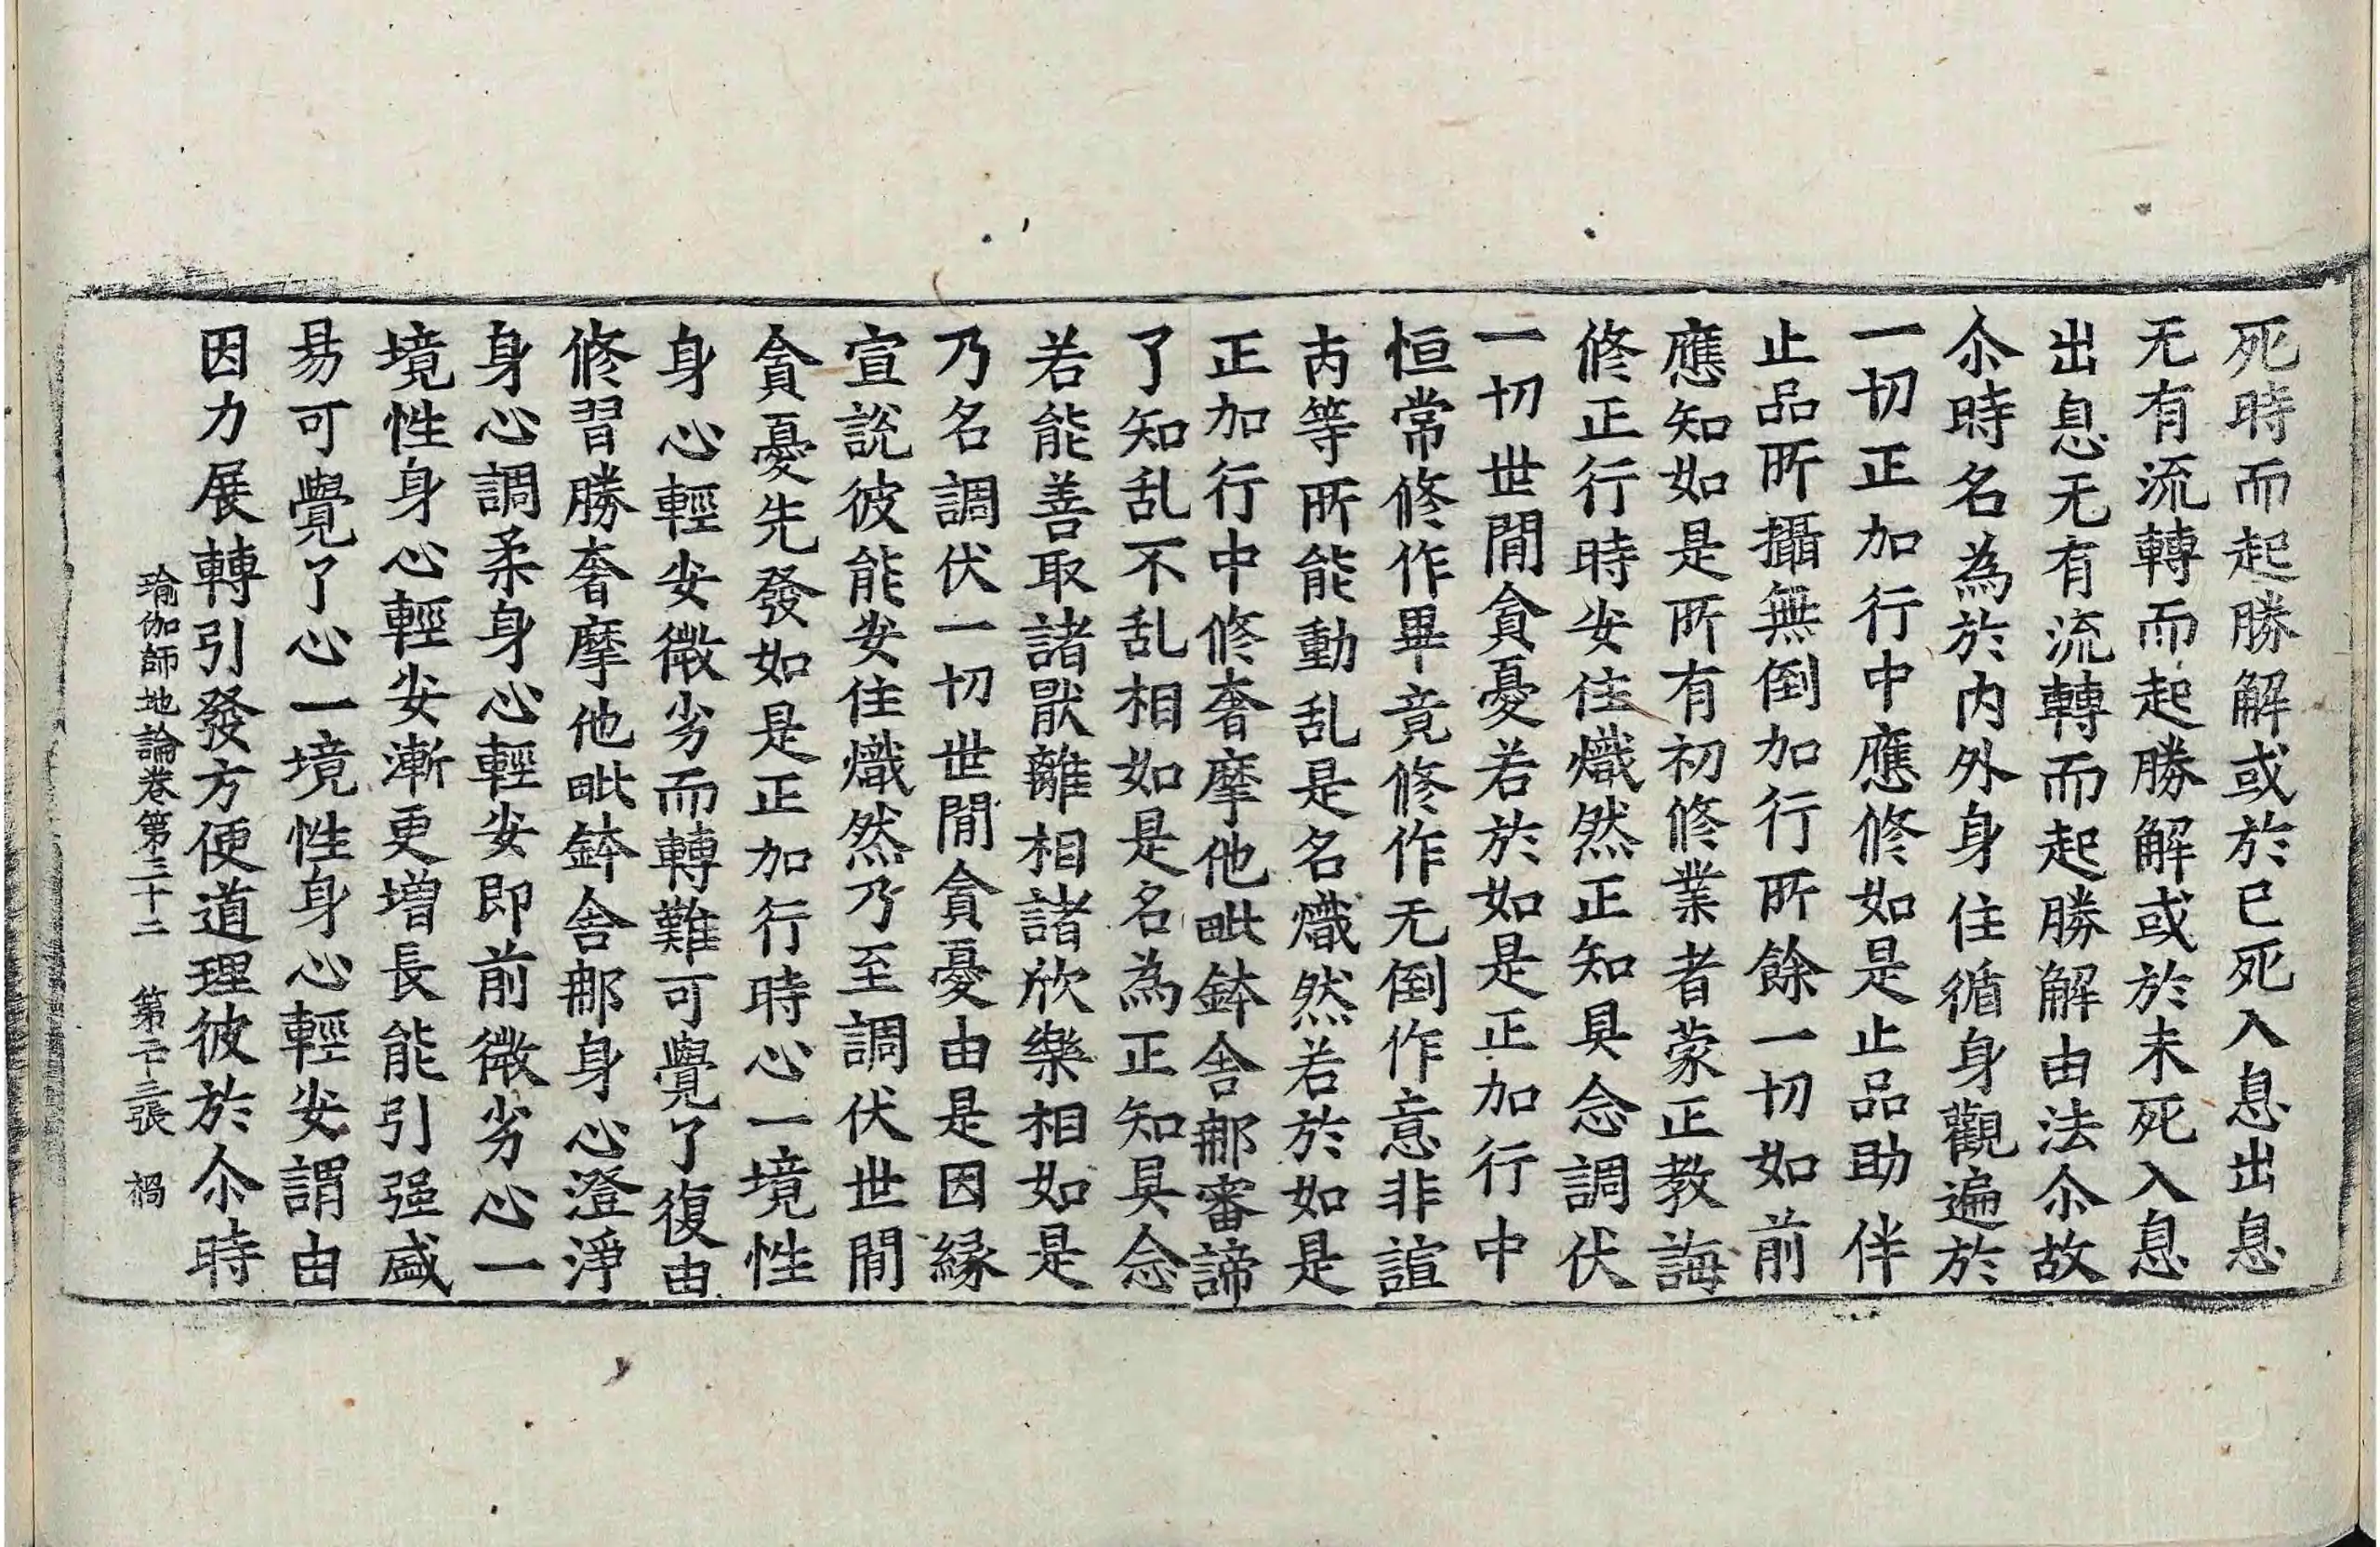 死時而起勝解或於已死入息出息
无有流轉而起勝解或於未死入息
出息无有流轉而起勝解由法尒故
尒時名為於内外身住循身觀遍於
一切正加行中應修如是止品助伴
止品所攝無倒加行所餘一切如前
應知如是所有初修業者蒙正教誨
修正行時安住熾然正知具念調伏
一切世間貪憂若於如是正加行中
恒常修作畢竟修作无倒作意非諠
丙等所能動乱是名熾然若於如是
正加行中修奢摩他毗鉢舍那審諦
了知乱不乱相如是名為正知具念
若能善取諸猒離相諸欣樂相如是
乃名調伏一切世間貪憂由是因縁
宣說彼能安住熾然乃至調伏世間
貪憂先發如是正加行時心一境性
身心輕安微劣而轉難可覺了復由
修習勝奢摩他毗鉢舍那身心澄淨
身心調柔身心輕安即前微劣心一
境性身心輕安漸更增長能引强盛
易可覺了心一境性身心輕安謂由
因力展轉引發方便道理彼於尒時
瑜伽師地論卷第三十二 第二十三張 禍